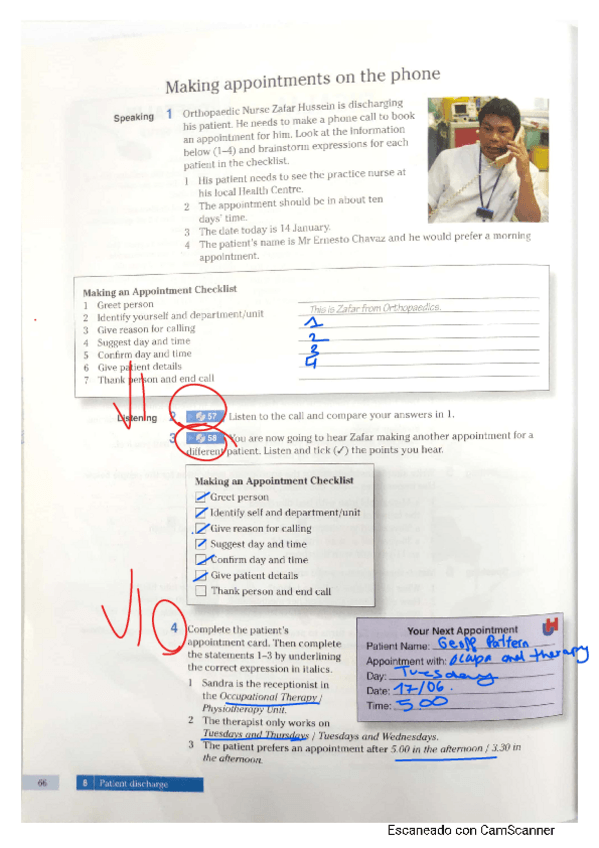 Making appointments on the phone
Speaking
1 Orthopaedic Nurse Zafar Hussein is discharging
his patient. He needs to make a phone call to book
an appointment for him. Look at the information
below (1–4) and brainstorm expressions for each
patient in the checklist.
1 His patient needs to see the practice nurse at
his local Health Centre.
2 The appointment should be in about ten
days' time.
3 The date today is 14 January.
4 The patient's name is Mr Ernesto Chavaz and he would prefer a morning
appointment.
Making an Appointment Checklist
1 Greet person
2 Identify yourself and department/unit
3 Give reason for calling
4 Suggest day and time
5 Confirm day and time
6 Give patient details
7 Thank person and end call
This is Zafar from Orthopaedics.
1
2
3
4
Listening
2 57 Listen to the call and compare your answers in 1.
3 58 You are now going to hear Zafar making another appointment for a
different patient. Listen and tick (✓) the points you hear.
Making an Appointment Checklist
Greet person
Identify self and department/unit
Give reason for calling
Suggest day and time
Confirm day and time
Give patient details
Thank person and end call
4 Complete the patient's
appointment card. Then complete
the statements 1–3 by underlining
the correct expression in italics.
1 Sandra is the receptionist in
the Occupational Therapy /
Physiotherapy Unit.
2 The therapist only works on
Tuesdays and Thursdays / Tuesdays and Wednesdays.
3 The patient prefers an appointment after 5.00 in the afternoon / 3.30 in
the afternoon.
Your Next Appointment
Patient Name: Geoff
Appointment with: and therapy
Day: Tuesday
Date: 17/06.
Time: 5.00
66
8 Patient discharge
Escaneado con CamScanner